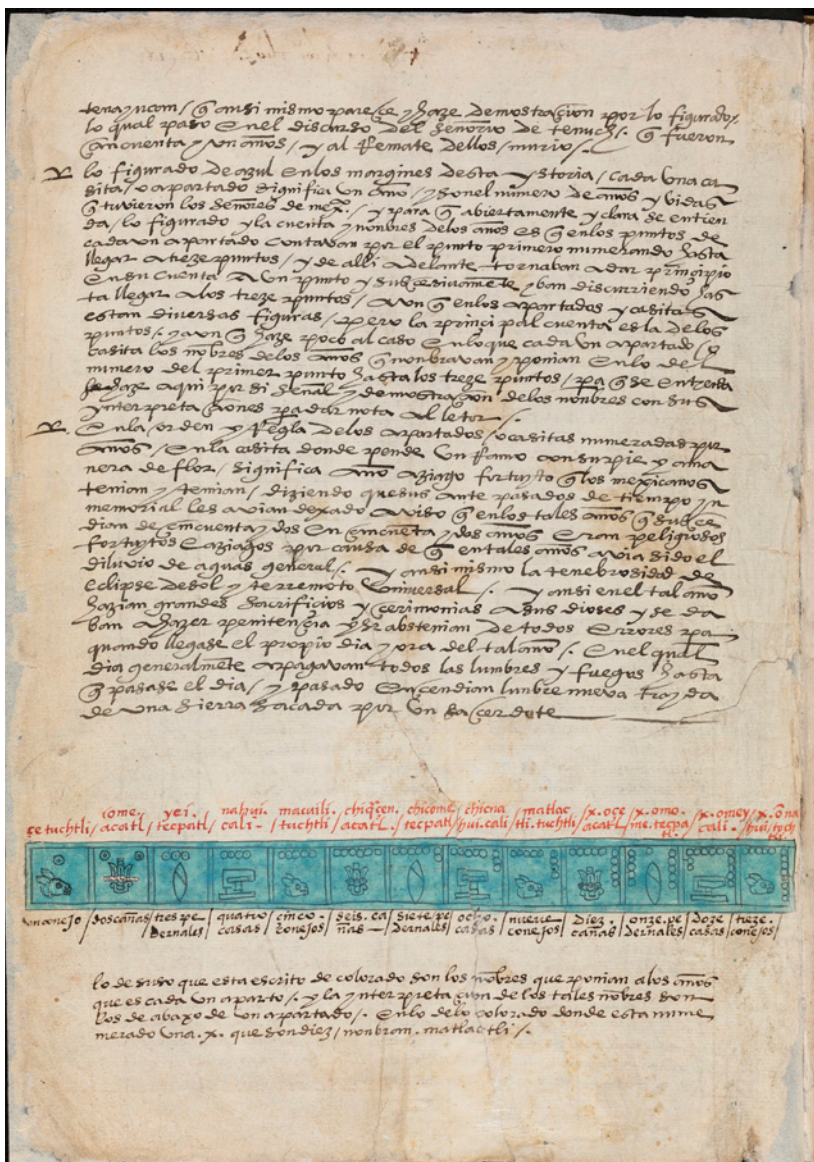 tenayucan / q̃ ansi mismo pareçe y haze demostraçion por lo figurado /.
lo qual paso en el discurso del señorio de tenuch /. q̃ fueron
çincuenta y un años / y al Remate dellos / murio /.
lo figurado de azul en los margines desta ystoria / cada una ca
sita / o apartado significa un año / y son el numero de años y vidas
q̃ tuvieron los señores de mexᵒ. / y para q̃ abiertamente y clara se entien
da / lo figurado y la cuenta y nonbres de los años es q̃ en los puntos de
cada un apartado contavan por el punto primero numerando hasta
llegar a treze puntos / y de alli adelante tornaban a dar prinçipio
en su cuenta a un punto y subcesivamēte yban discurriendo has
ta llegar a los treze puntos / aun q̃ en los apartados y casitas
estan diversas figuras / pero la prinçipal cuenta es la de los
puntos /. y aun q̃ haze poco al caso en lo que cada un apartado / o
casita los nōbres de los años q̃ nonbravan y ponian en lo del
numero del primer punto hasta los treze puntos / pa q̃ se entienda
se haze aqui por si señal y demostraçion de los nonbres con sus
ynterpretaçiones pa dar nota al letor /.
En la orden y Regla de los apartados / o casitas numeradas por
años / en la casita donde pende un Ramo con su pie y a ma
nera de flor / significa año aziago fortuyto q̃ los mexicanos
tenian y temian / diziendo que sus ante pasados de tiempo yn
memorial les avian dexado aviso q̃ en los tales años q̃ subçe
dian de çincuenta y dos en çincuēta y dos años eran peligrosos
fortuytos e aziagos por causa de q̃ en tales años avia sido el
diluvio de aguas general /. y ansi mismo la tenebrosidad de
eclipse de sol y terremoto universal /. y ansi en el tal año
hazian grandes sacrifiçios y çerimonias a sus dioses y se da
ban a hazer penitençia y se abstenian de todos errores pa
quando llegase el propio dia y ora del tal año /. en el qual
dia generalmēte apagavan todos las lumbres y fuegos hasta
q̃ pasase el dia / y pasado ençendian lunbre nueva trayda
de una sierra sacada por un saçerdote
çe tuchtli / ome acatl / yei tecpatl / nahui. cali. / macuili. tuchtli / chiq̃çen. acatl. / chicome tecpatl / chicna hui. cali / matlac tli. tuchtli / .x. oçe acatl / .x. omo. me. tecpa tl. / .x. omey cali. / .x. ōna hui / toch tli.
un conejo / dos cañas / tres pe dernales / quatro casas / çinco. conejos / seis. ca ñas / siete. pe dernales / ocho. casas / nueve conejos / diez. cañas / onze. pe dernales / doze casas / treze. conejos /
lo de suso que esta escrito de colorado son los nōbres que ponian a los años
que es cada un aparto /. y la ynterpretaçion de los tales nōbres son
los de abaxo de un apartado /. en lo de lo colorado donde esta nume
merado una .x. que son diez / nonbran. matlactli /.